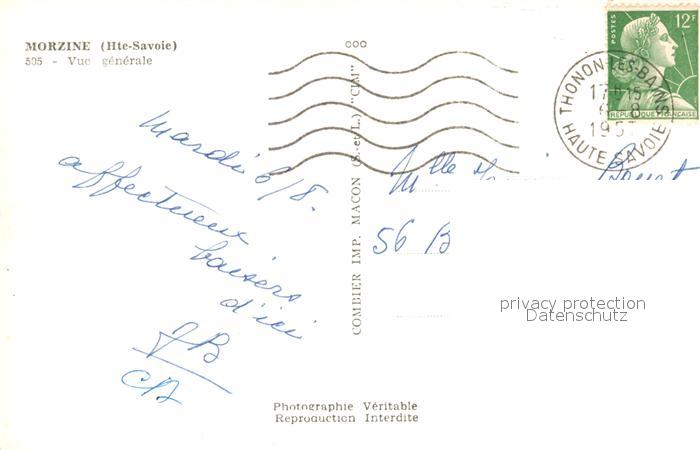 MORZINE (Hte-Savoie)
505 - Vue générale
Mardi 6/8.
affectueux
baisers
d'ici
JB
CB
COMBIER IMP. MACON (S.-et-L.) "CIM"
POSTES
12F
REPUBLIQUE FRANÇAISE
THONON-LES-BAINS
17H15
6 - 8
HAUTE-SAVOIE
Mlle
56 B
privacy protection
Datenschutz
Photographie Véritable
Reproduction Interdite